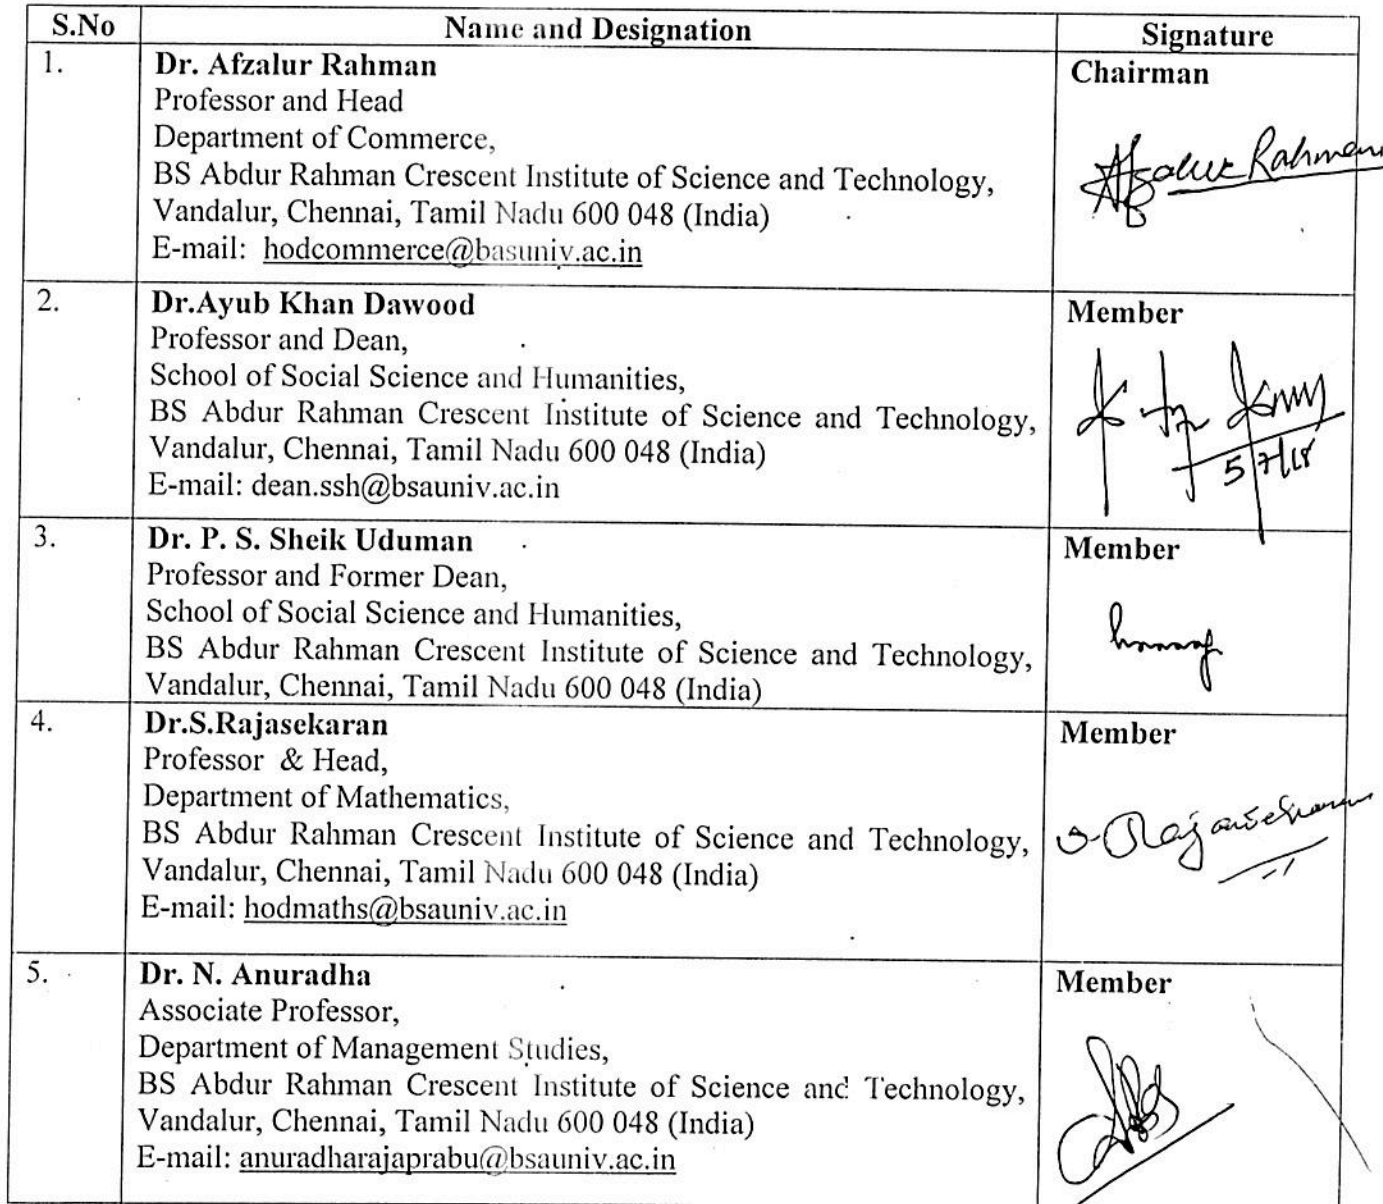 S.No Name and Designation Signature
1. Dr. Afzalur Rahman Chairman
Professor and Head
Department of Commerce,
BS Abdur Rahman Crescent Institute of Science and Technology,
Vandalur, Chennai, Tamil Nadu 600 048 (India)
E-mail: hodcommerce@basuniv.ac.in
Afzalur Rahman
2. Dr.Ayub Khan Dawood Member
Professor and Dean,
School of Social Science and Humanities,
BS Abdur Rahman Crescent Institute of Science and Technology,
Vandalur, Chennai, Tamil Nadu 600 048 (India)
E-mail: dean.ssh@bsauniv.ac.in
5/7/18
3. Dr. P. S. Sheik Uduman Member
Professor and Former Dean,
School of Social Science and Humanities,
BS Abdur Rahman Crescent Institute of Science and Technology,
Vandalur, Chennai, Tamil Nadu 600 048 (India)
4. Dr.S.Rajasekaran Member
Professor & Head,
Department of Mathematics,
BS Abdur Rahman Crescent Institute of Science and Technology,
Vandalur, Chennai, Tamil Nadu 600 048 (India)
E-mail: hodmaths@bsauniv.ac.in
S. Rajasekaran
5. Dr. N. Anuradha Member
Associate Professor,
Department of Management Studies,
BS Abdur Rahman Crescent Institute of Science and Technology,
Vandalur, Chennai, Tamil Nadu 600 048 (India)
E-mail: anuradharajaprabu@bsauniv.ac.in